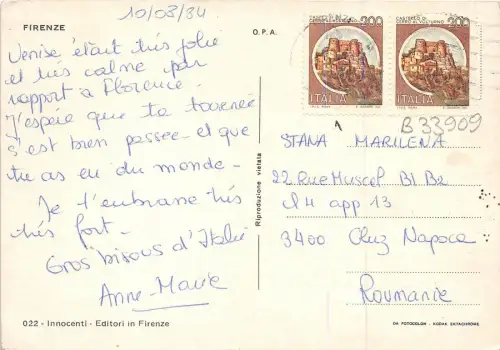 10/03/84
FIRENZE
O.P.A.
Venise était très jolie
et très calme par
rapport à Florence.
J'espère que ta tournée
s'est bien passée - et que
tu as eu du monde -
Je t'embrasse très
très fort -
Gros bisous d'Italie
Anne-Marie
022 - Innocenti - Editori in Firenze
Riproduzione vietata
CASTELLO DI CERRO AL VOLTURNO 200
ITALIA
CASTELLO DI CERRO AL VOLTURNO 200
ITALIA
B 33909
STANA MARILENA
22 Rue Muscel Bl B2
et 4 app 13
3400 Cluj Napoca
Roumanie
DA FOTOCOLOR - KODAK EKTACHROME